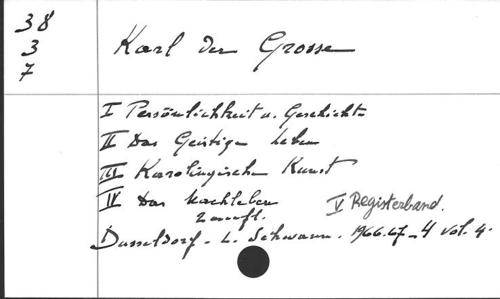 38
3
7
Karl der Grosse
I Persönlichkeit u. Geschichte
II Das Geistige Leben
III Karolingische Kunst
IV Das Nachleben
V Registerband.
2 Aufl.
Dusseldorf - L. Schwann. 1966.67 - 4 vol. 4º